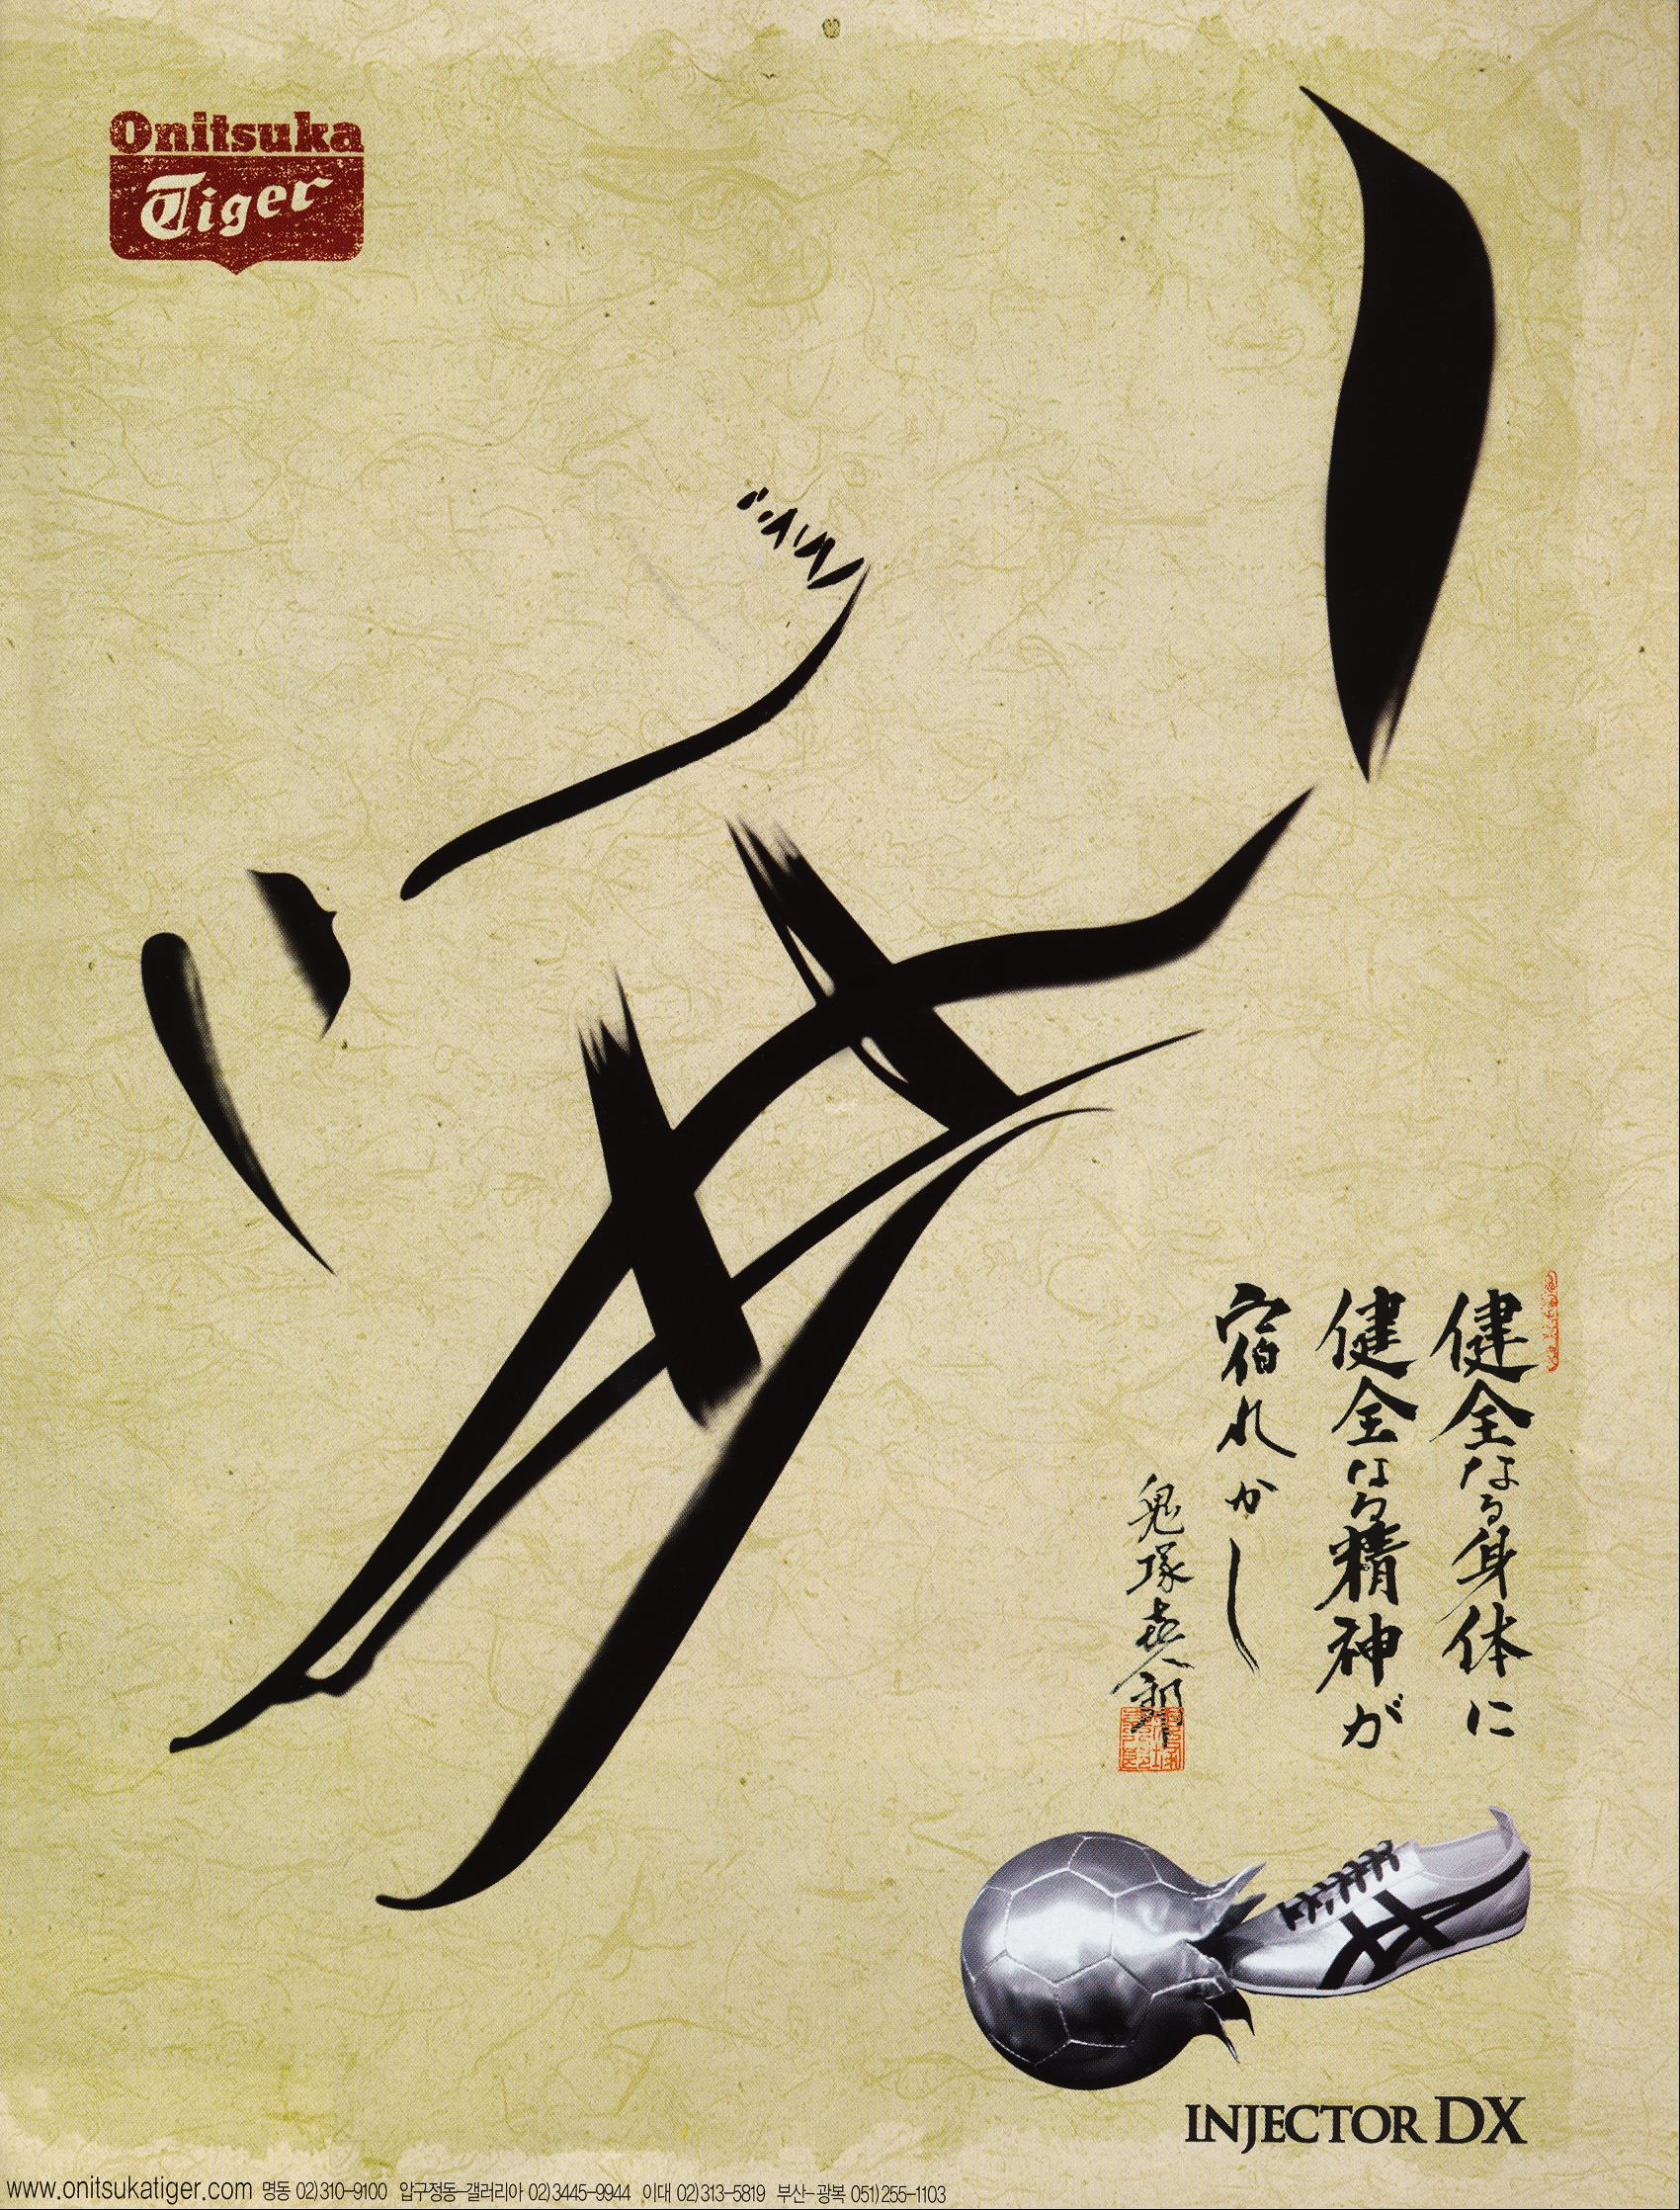 Onitsuka
Tiger
健全なる身体に
健全なる精神が
宿れかし
鬼塚喜八郎
INJECTOR DX
www.onitsukatiger.com 명동 02)310-9100 압구정동-갤러리아 02)3445-9944 이대 02)313-5819 부산-광복 051)255-1103